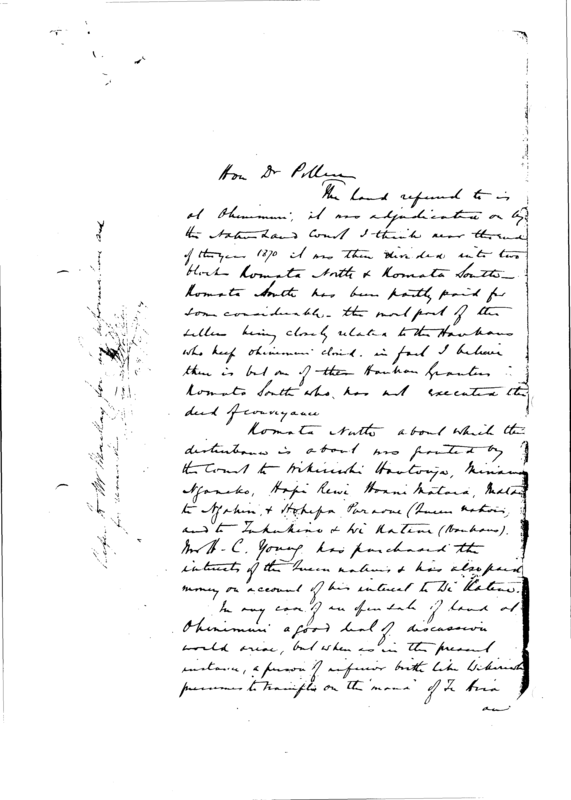 Hon Dr Pollen
The land referred to is
at Ohinimuri, it was adjudicated on by
the Native Land Court I think near the end
of the year 1870 it was then divided into two
blocks Komata North & Komata South
Komata South has been partly paid for
some considerable - the most part of the
sellers being closely related to the Hauhaus
who keep Ohinimuri closed. in fact I believe
there is but one of these Hauhau Grantees in
Komata South who has not executed the
deed of conveyance
Komata North about which the
disturbance is about was granted by
the Court to Wikiriwhi Hautonga,
Hapi Rewi Hoani Mataia,
to Ngahiri & Hohepa Paraone (Queen natives)
and to Tukukino & Wi Katene (Hauhaus).
Mr H. C. Young has purchased the
interests of the Queen natives & has also paid
money on account of his interest to Wi Katene.
In any case of an open sale of land at
Ohinimuri a good deal of discussion
would arise, but when as in the present
instance, a person of inferior birth like Wikiriwhi
presumes to trample on the 'mana' of Te Hira
an
Refer to Mr Mackay for any information and